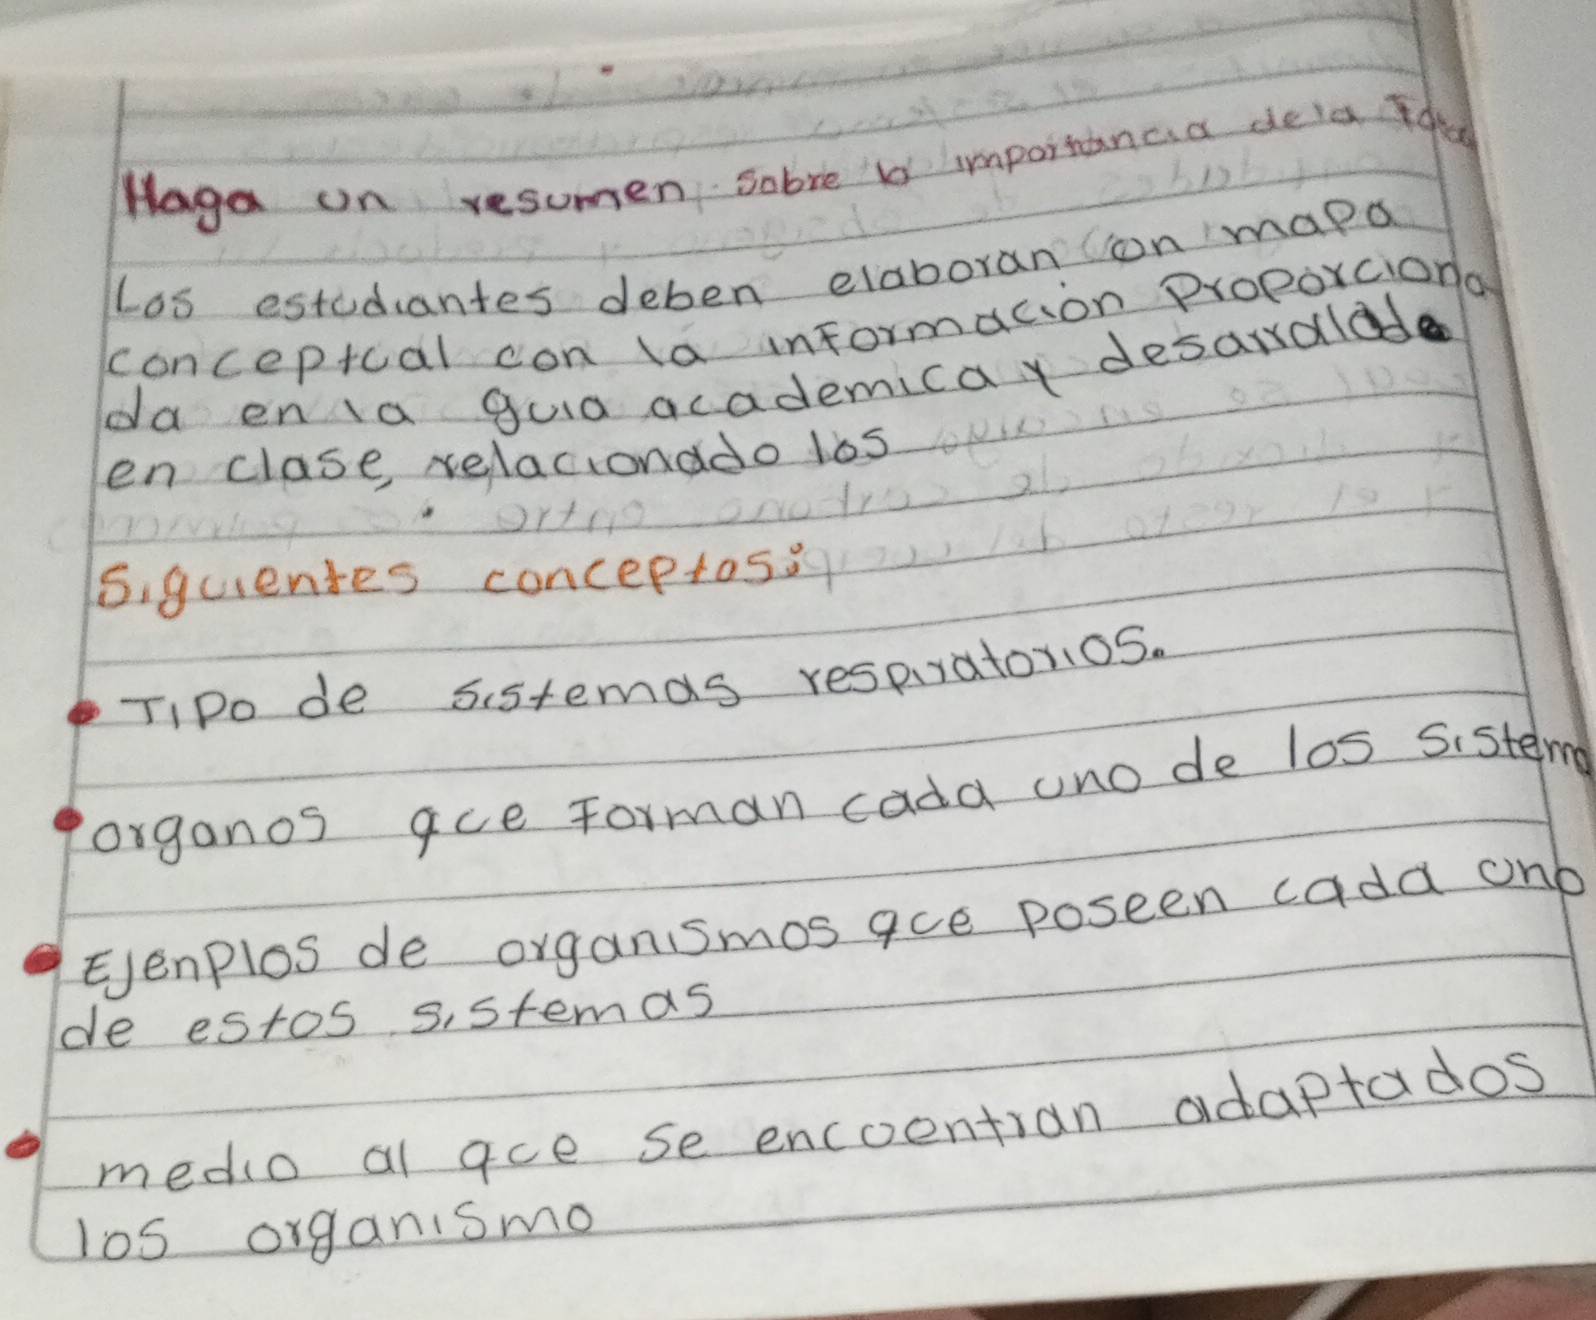 Haga un resumen sobre la importancia de la
Los estudiantes deben elaboran un mapa
conceptual con la información Proporciona
da en la guia academica y desarrallado
en clase, relacionado los
Siguientes conceptos:
• TIPO de sistemas respiratorios.
• organos que Forman cada uno de los sistema
• EJenPlos de organismos que poseen cada uno
de estos sistemas
• medio al que se encuentran adaptados
los organismo